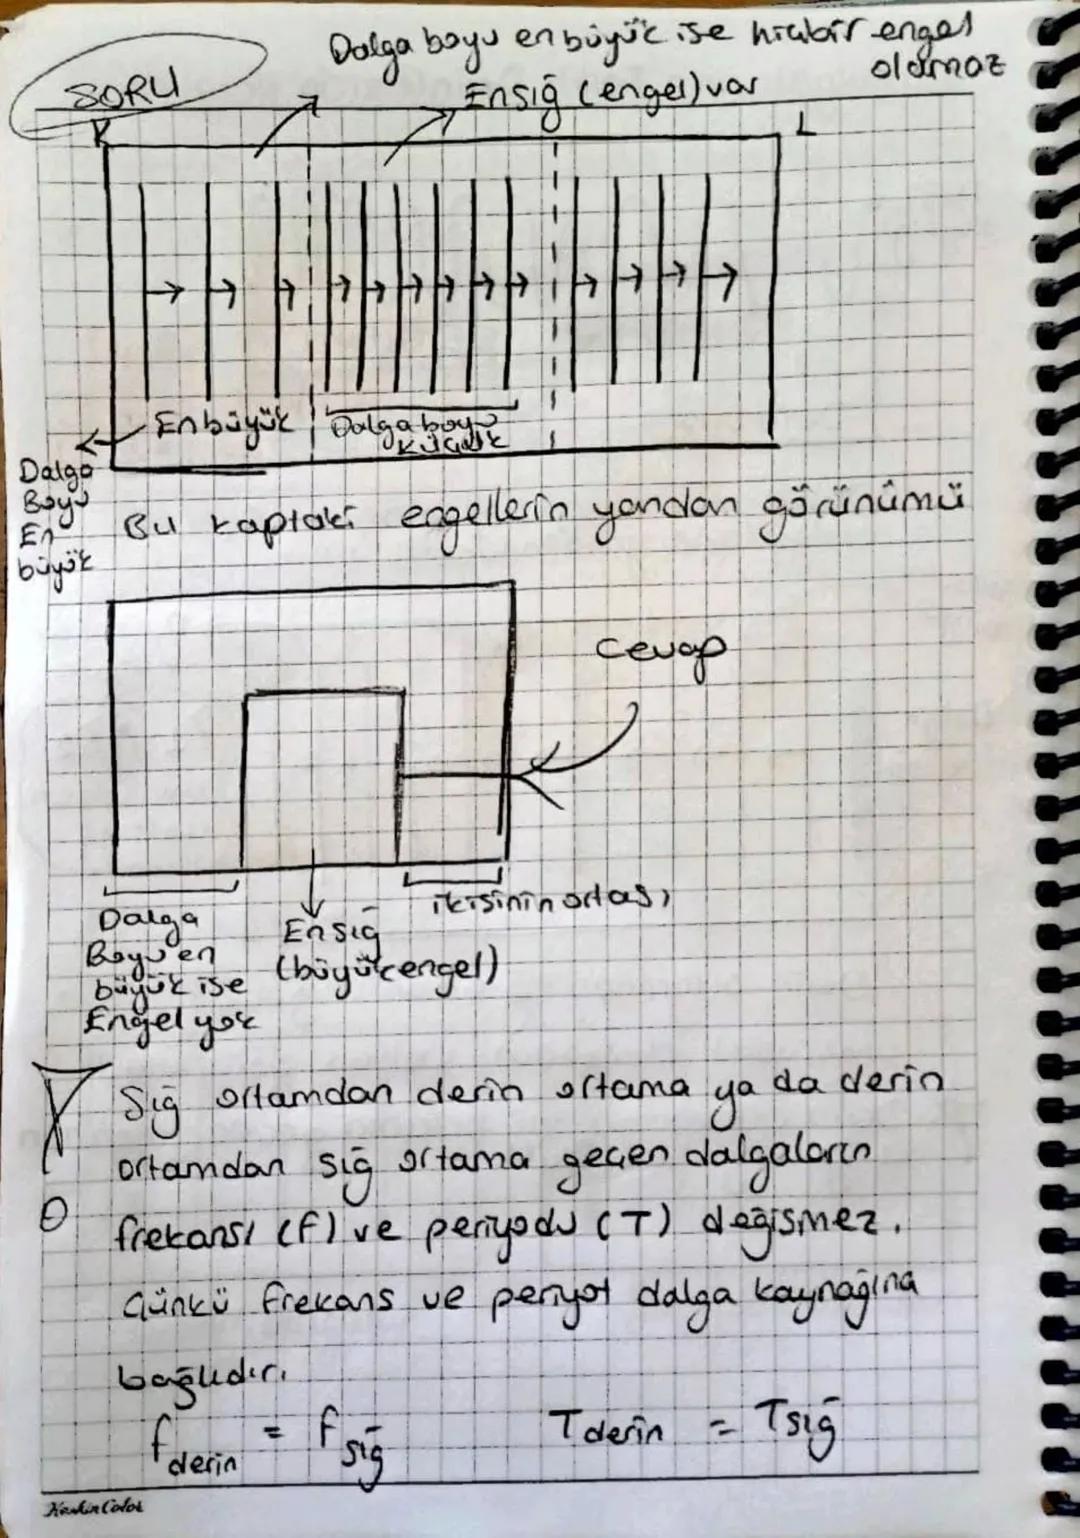 Dalga boyu en büyük ise hiçbir engel
olamaz
SORU
En sığ (engel) var
K
L
En büyük
Dalga boyu
küçük
Dalga
Boyu
En
büyük
Bu kaptaki engellerin yandan görünümü
Cevap
ikisinin ortası
Dalga
Boyu en
büyük ise
Engel yok
En sığ
(büyük engel)
Sığ ortamdan derin ortama ya da derin
ortamdan sığ ortama geçen dalgaların
frekansı (f) ve periyodu (T) değişmez.
Çünkü frekans ve periyot dalga kaynağına
bağlıdır.
f derin = f sığ
T derin = T sığ
Keskin Color